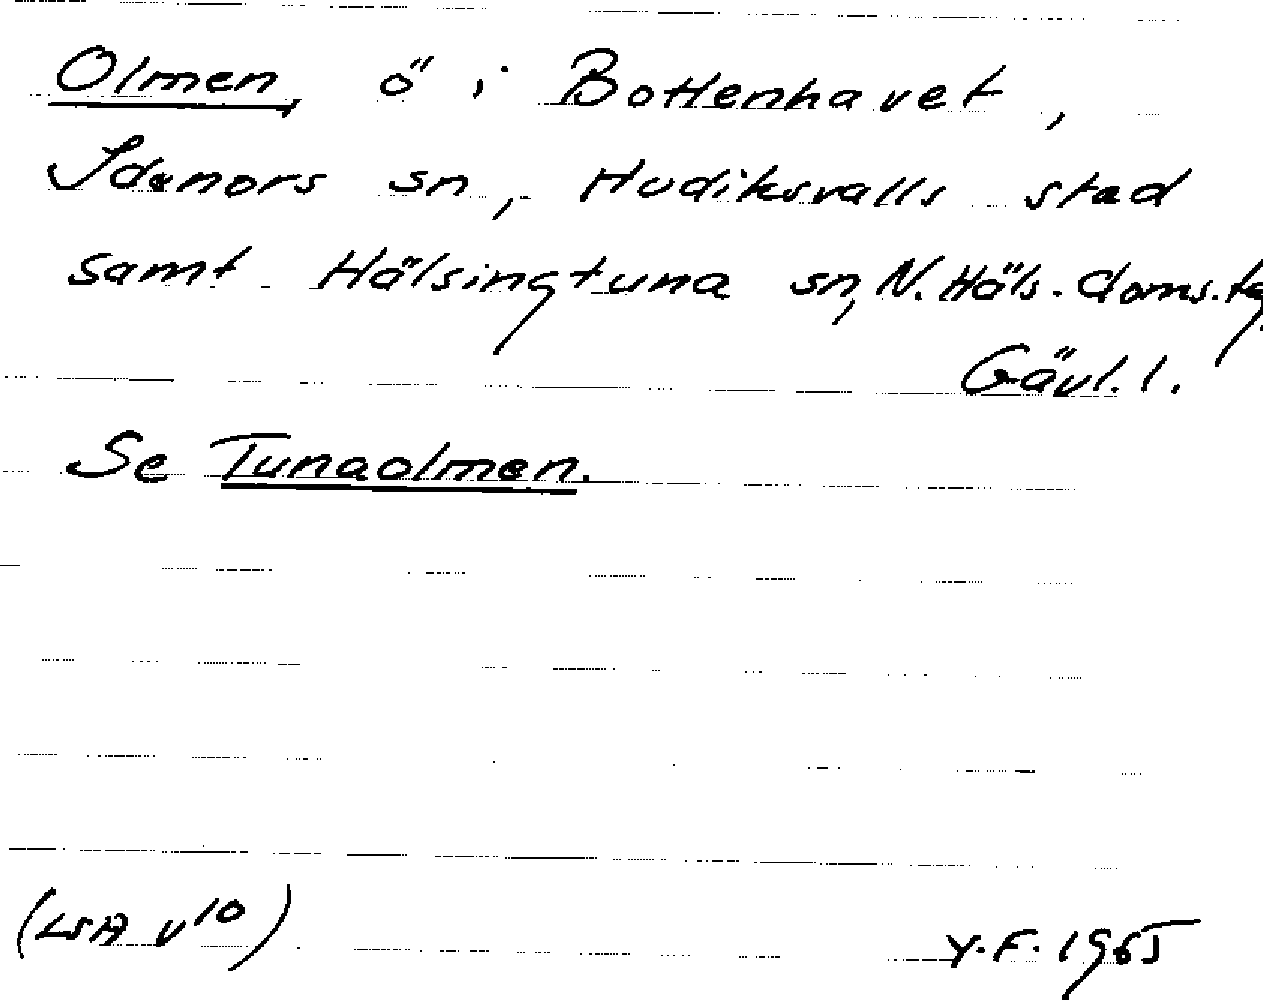 Olmen, ö i Bottenhavet,
Idenors sn, Hudiksvalls stad
samt Hälsingtuna sn, N. Häls. doms.tg,
Gävl. l.
Se Tunaolmen.
(LSA v10)
Y.F. 1965